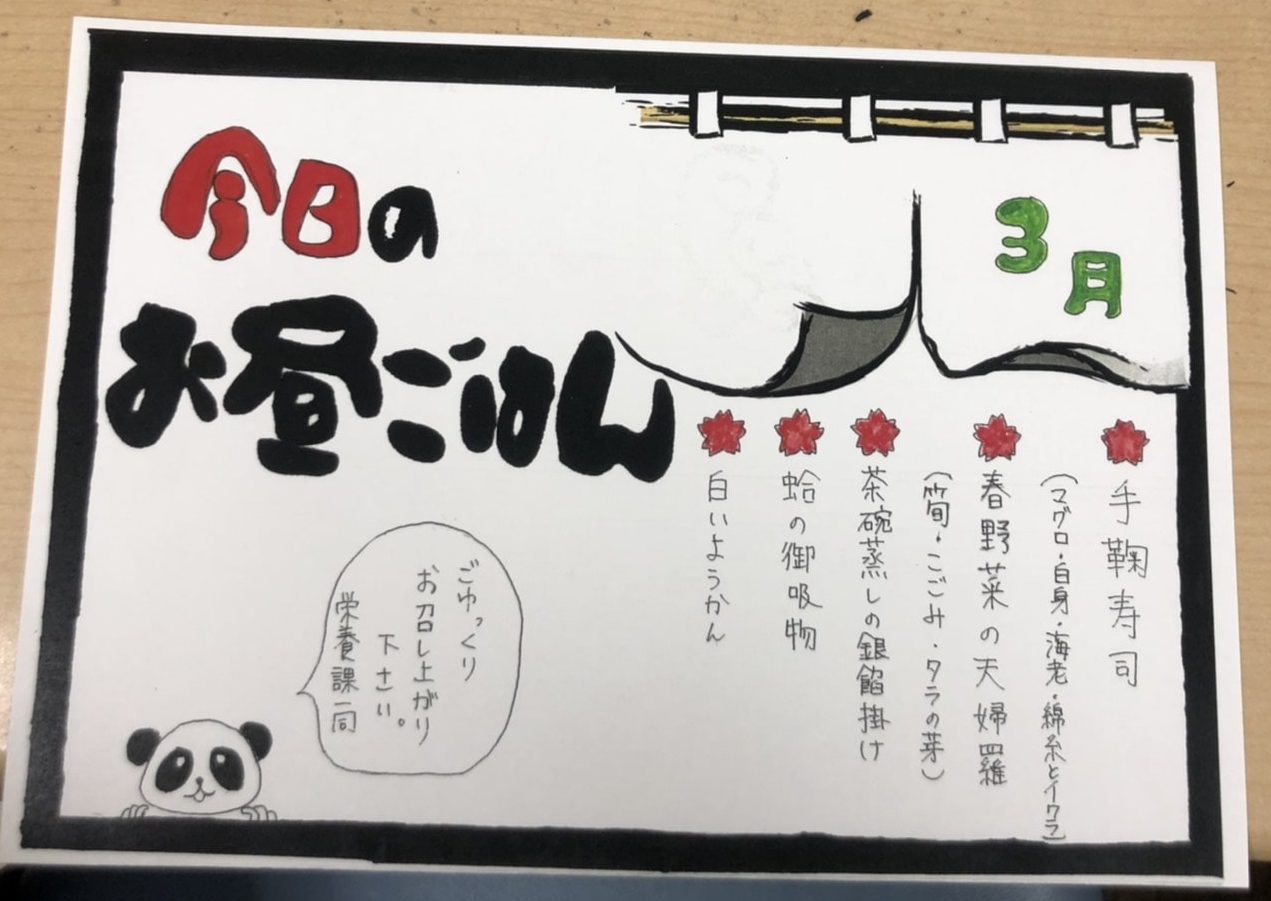 今日の
お昼ごはん
3月
手鞠寿司
(マグロ・自身・海老・綿糸とイクラ)
春野菜の天婦羅
(筍・こごみ・タラの芽)
茶碗蒸しの銀餡掛け
蛤の御吸物
白いようかん
ごゆっくり
お召し上がり
下さい。
栄養課一同